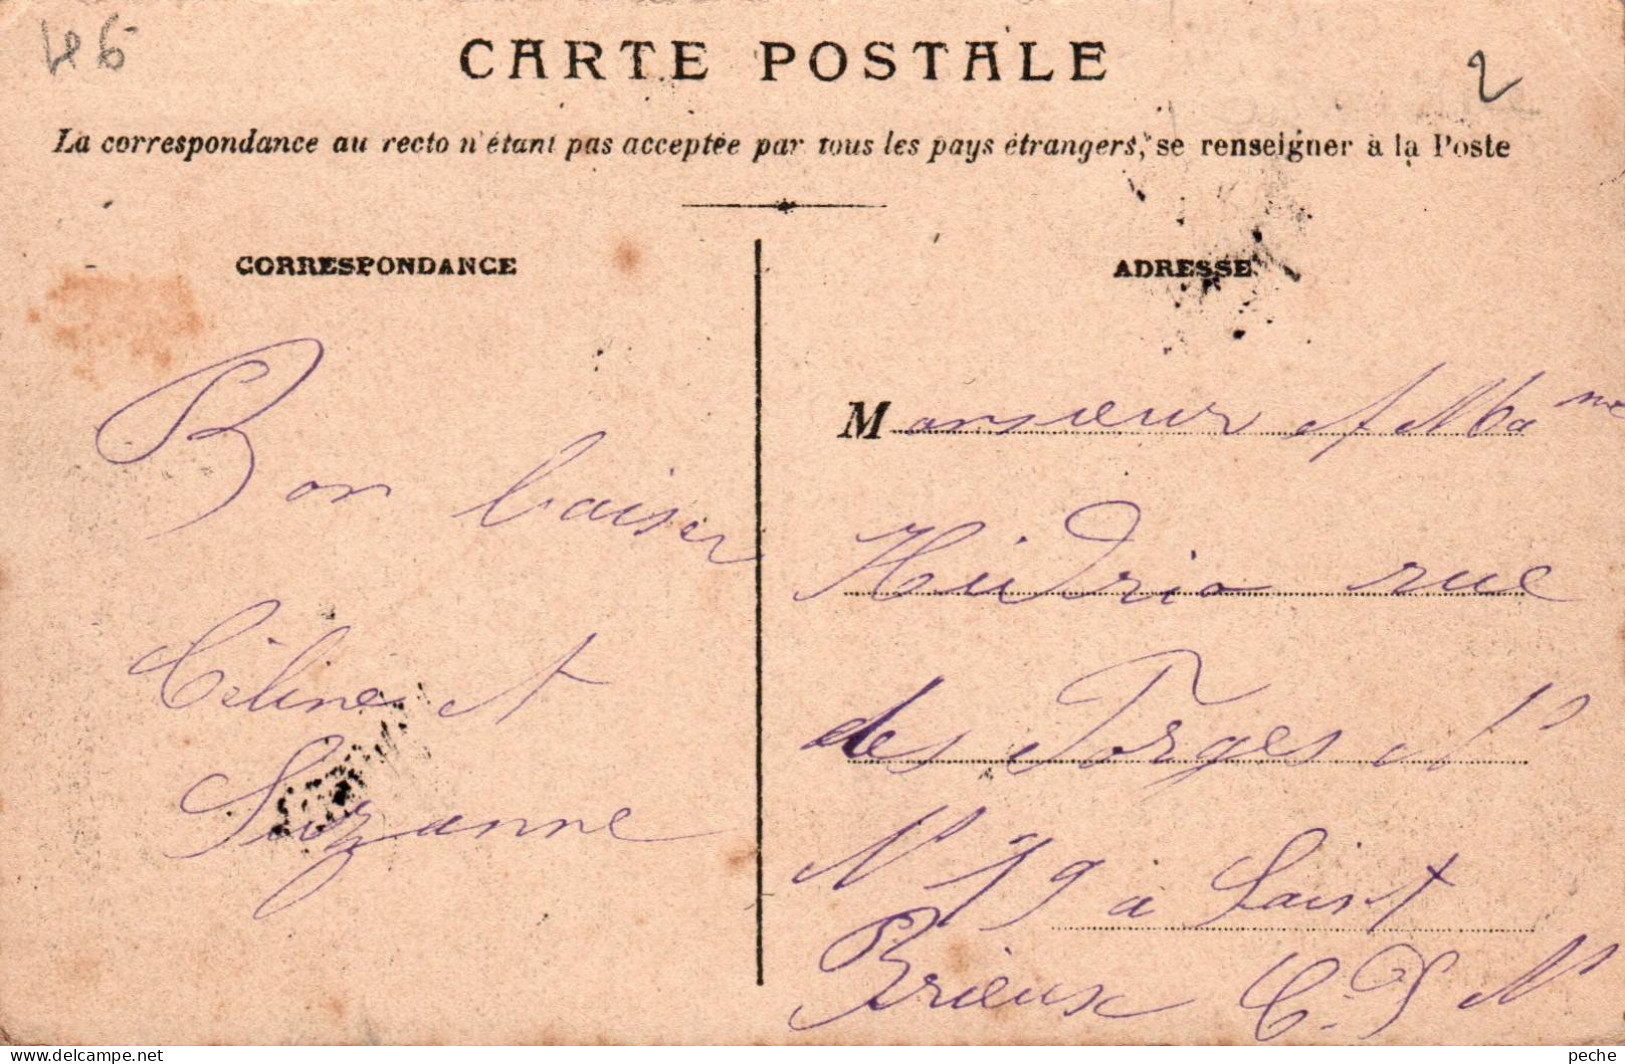 46
2
CARTE POSTALE
La correspondance au recto n'étant pas acceptée par tous les pays étrangers, se renseigner à la Poste
CORRESPONDANCE
Bon baiser
Céline et
Suzanne
ADRESSE
Monsieur et Mme
Hidrio rue
des Forges N°
N° 19 à Saint
Brieux C. D N
peche